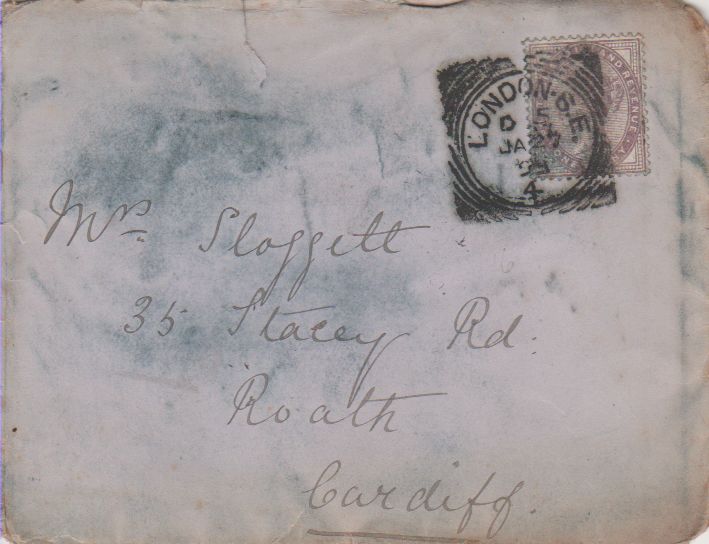 LONDON·S.E.
JA 27
4
AND REVENUE
Mrs Sloggett
35 Stacey Rd.
Roath
Cardiff.